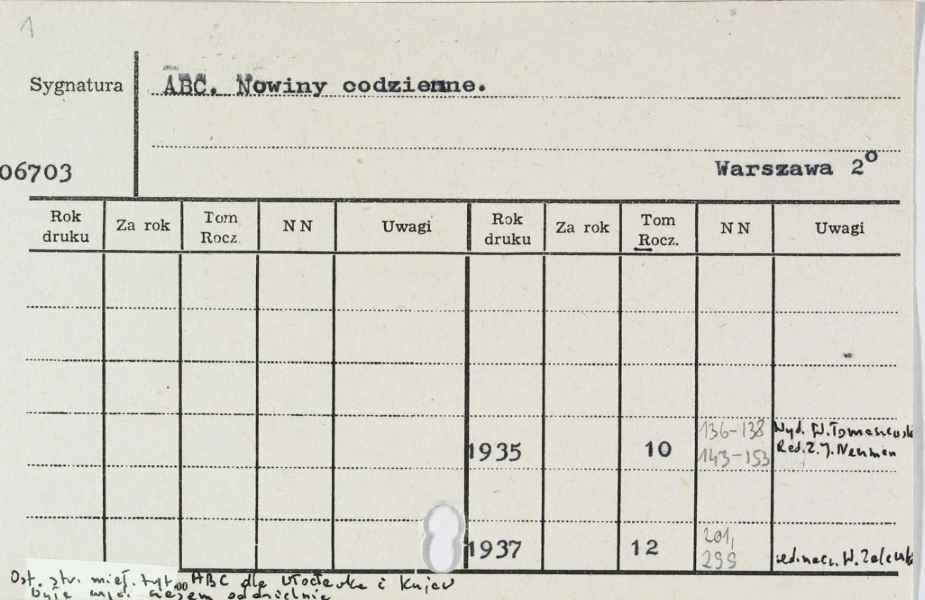 1
Sygnatura
ABC. Nowiny codzienne.
06703
Warszawa 2⁰
Rok druku Za rok Tom Rocz. NN Uwagi Rok druku Za rok Tom Rocz. NN Uwagi
1935 10 136-138 Wyd. W.
143-153 Red. Z. J. Neuman
1937 12 201,
299 W.
Ost. str. miej. tyt. ABC dla Włocławka i Kujaw